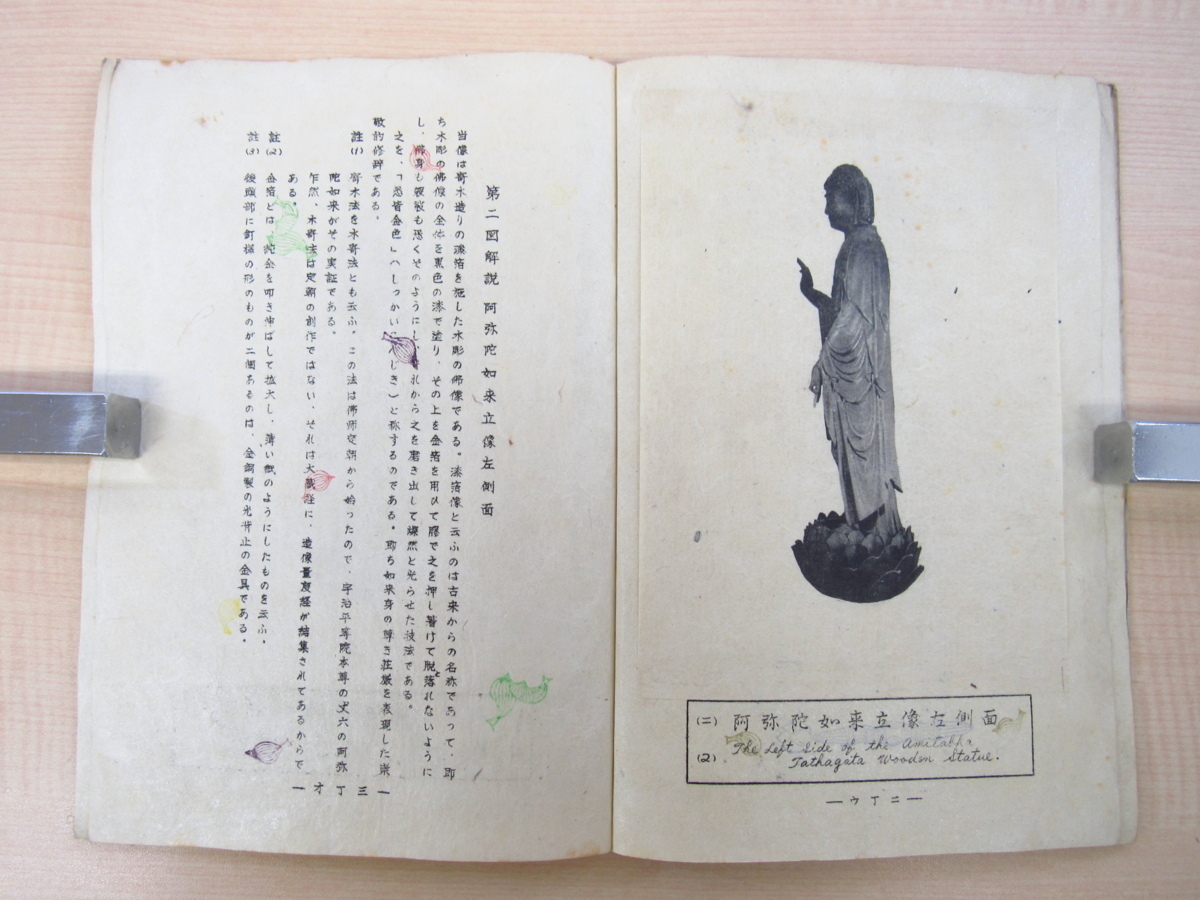 (二) 阿弥陀如来立像左側面
(2) The Left Side of the Amitabha
Tathagata Wooden Statue.
二丁ウ
第二図解説 阿弥陀如来立像左側面
当像は寄木造りの漆箔を施した木彫の佛像である。漆箔像と云ふのは古来からの名称であって、即
ち木彫の佛像の全体を黒色の漆で塗り、その上を金箔を用ひて膠で之を押し着けて脱落れないように
し、佛身も衣裳も悉くそのようにし、それから之を磨き出して燦然と光らせた技法である。
之を、「悉皆金色」(しっかいこんじき)と称するのである。即ち如来身の尊き荘厳を表現した崇
敬的修辞である。
註(1) 寄木法を木寄法とも云ふ。この法は佛師定朝から始ったので、宇治平等院本尊の丈六の阿弥
陀如来がその実証である。
乍然、木寄法は定朝の創作ではない、それは大蔵経に、造像量度経が結集されてあるからで
ある。
註(2) 金箔とは、純金を叩き伸ばして拡大し、薄い紙のようにしたものを云ふ。
註(3) 後頭部に釘様の形のものが二個あるのは、金銅製の光背止の金具である。
三丁オ